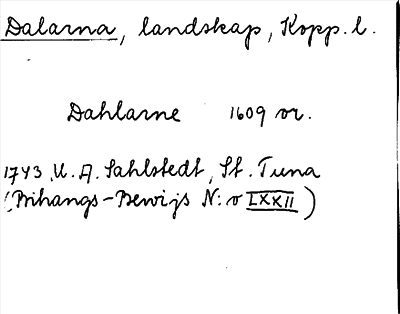 Dalarna, landskap, Kopp. l.
Dahlarne 1609 or.
1743 U. A. Sahlstedt, St. Tuna
(Bihangs-Bewijs N:o LXXII)